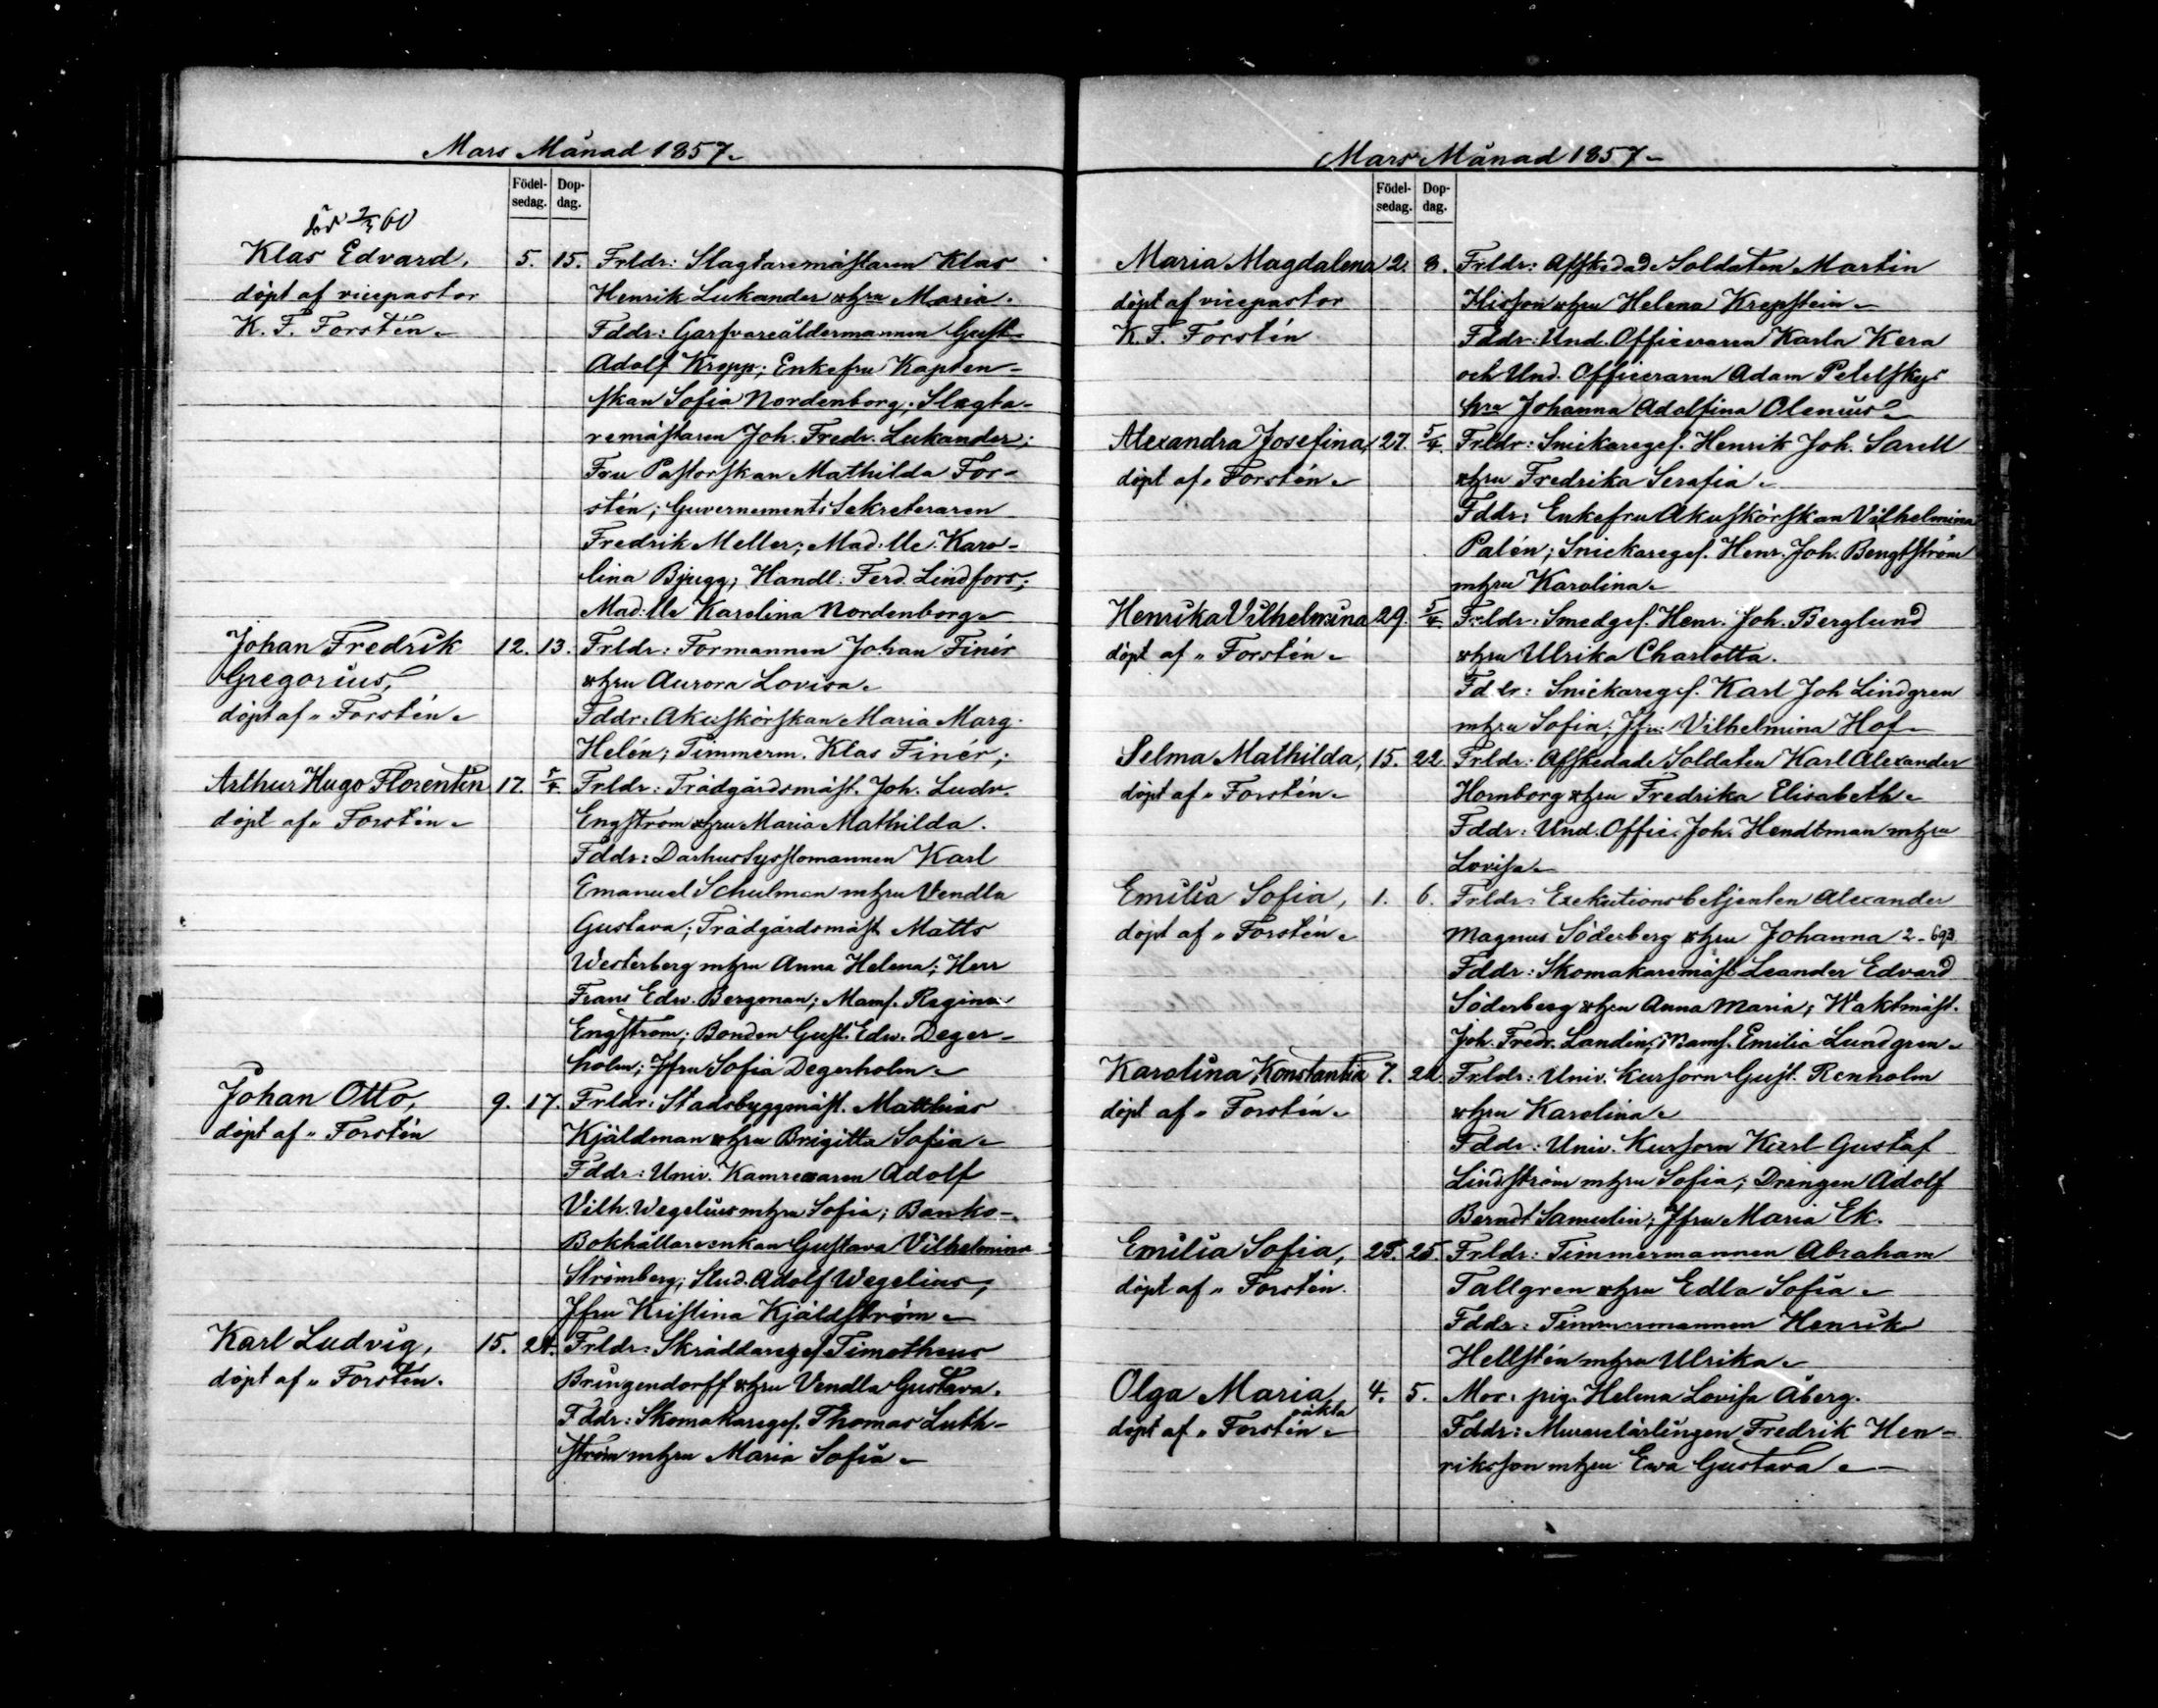 Mars Månad 1857
Födel-
sedag.
Dop-
dag.
död 2/3 60
Klas Edvard,
döpt af vicepastor
K. F. Forstén
5. 15. Frldr: Slagtaremästaren Klas
Henrik Lukander o hu Maria.
Fddr: Garfvareåldermannen Gust.
Adolf Kropp; Enkefru Kapten-
skan Sofia Nordenborg; Slagta-
remästaren Joh. Fredr. Lukander;
Fru Pastorskan Mathilda For-
stén; Guvernements Sekreteraren
Fredrik Meller; Mad:lle Karo-
lina Bjugg; Handl. Ferd. Lindfors;
Mad:lle Karolina Nordenborg
Johan Fredrik
Gregorius,
döpt af " Forstén
12. 13. Frldr: Formannen Johan Finér
o hu Aurora Lovisa
Fddr: Akuskörskan Maria Marg.
Helén; Timmerm. Klas Finér;
Arthur Hugo Florentin
döpt af " Forstén
17. 5/4. Frldr: Trädgårdsmäst. Joh. Ludv.
Engström o hu Maria Mathilda.
Fddr: Darhussysslomannen Karl
Emanuel Schulman m hu Vendla
Gustava; Trädgårdsmäst. Matts
Westerberg m hu Anna Helena; Herr
Frans Edv. Bergman; Mams. Regina
Engström; Bonden Gust. Edv. Deger-
holm; Jfru Sofia Degerholm
Johan Otto,
döpt af " Forstén
9. 17. Frldr: Stadsbyggmäst. Matthias
Kjäldman o hu Brigitta Sofia
Fddr: Univ. Kamreraren Adolf
Vilh. Wegelius m hu Sofia; Banko-
Bokhållareenkan Gustava Vilhelmina
Strömberg; Stud. Adolf Wegelius;
Jfru Kristina Kjäldström
Karl Ludvig,
döpt af " Forstén.
15. 24. Frldr: Skräddaregef Timotheus
Bringendorff o hu Vendla Gustava.
Fddr: Skomakaregef. Thomas Luth-
ström m hu Maria Sofia
Mars Månad 1857
Födel-
sedag.
Dop-
dag.
Maria Magdalena
döpt af vicepastor
K. F. Forstén
2. 8. Frldr: Afskedade Soldaten Martin
Hisson o hu Helena Krepstein
Fddr: Und. Officeraren Karla Kera
och Und. Officeraren Adam Petelskys
hru Johanna Adolfina Olenius
Alexandra Josefina,
döpt af " Forstén
27. 5/4. Frldr: Snickaregef. Henrik Joh. Sarell
o hu Fredrika Serafia
Fddr: Enkefru Akuskörskan Vilhelmina
Palén; Snickaregef. Henr. Joh. Bengtström
m hu Karolina
Henrika Vilhelmina
döpt af " Forstén
29. 5/4. Frldr: Smedgef. Henr. Joh. Berglund
o hu Ulrika Charlotta.
Fddr: Snickaregef. Karl Joh Lindgren
m hu Sofia; Jfru Vilhelmina Hof
Selma Mathilda,
döpt af " Forstén
15. 22. Frldr: Afskedade Soldaten Karl Alexander
Hornborg o hu Fredrika Elisabeth
Fddr: Und. Offic. Joh. Hendtman m hu
Lovisa
Emilia Sofia,
döpt af " Forstén
1. 6. Frldr: Exekutionsbetjenten Alexander
Magnus Söderberg o hu Johanna 2-693
Fddr: Skomakaremäst. Leander Edvard
Söderberg o hu Anna Maria; Waktmäst.
Joh. Fredr. Landin; Mams. Emilia Lundgren
Karolina Konstantia
döpt af " Forstén
7. 22. Frldr: Univ. Kursorn Gust. Renholm
o hu Karolina
Fddr: Univ. Kursorn Karl Gustaf
Lindström m hu Sofia; Drängen Adolf
Berndt Samulin; Jfru Maria Ek.
Emilia Sofia,
döpt af " Forstén.
25. 25. Frldr: Timmermannen Abraham
Tallgren o hu Edla Sofia
Fddr: Timmermannen Henrik
Hellstén m hu Ulrika
Olga Maria
oäkta
döpt af " Forstén
4. 5. Mor: pig. Helena Lovisa Åberg.
Fddr: Murarelärlingen Fredrik Hen-
riksson m hu Eva Gustava